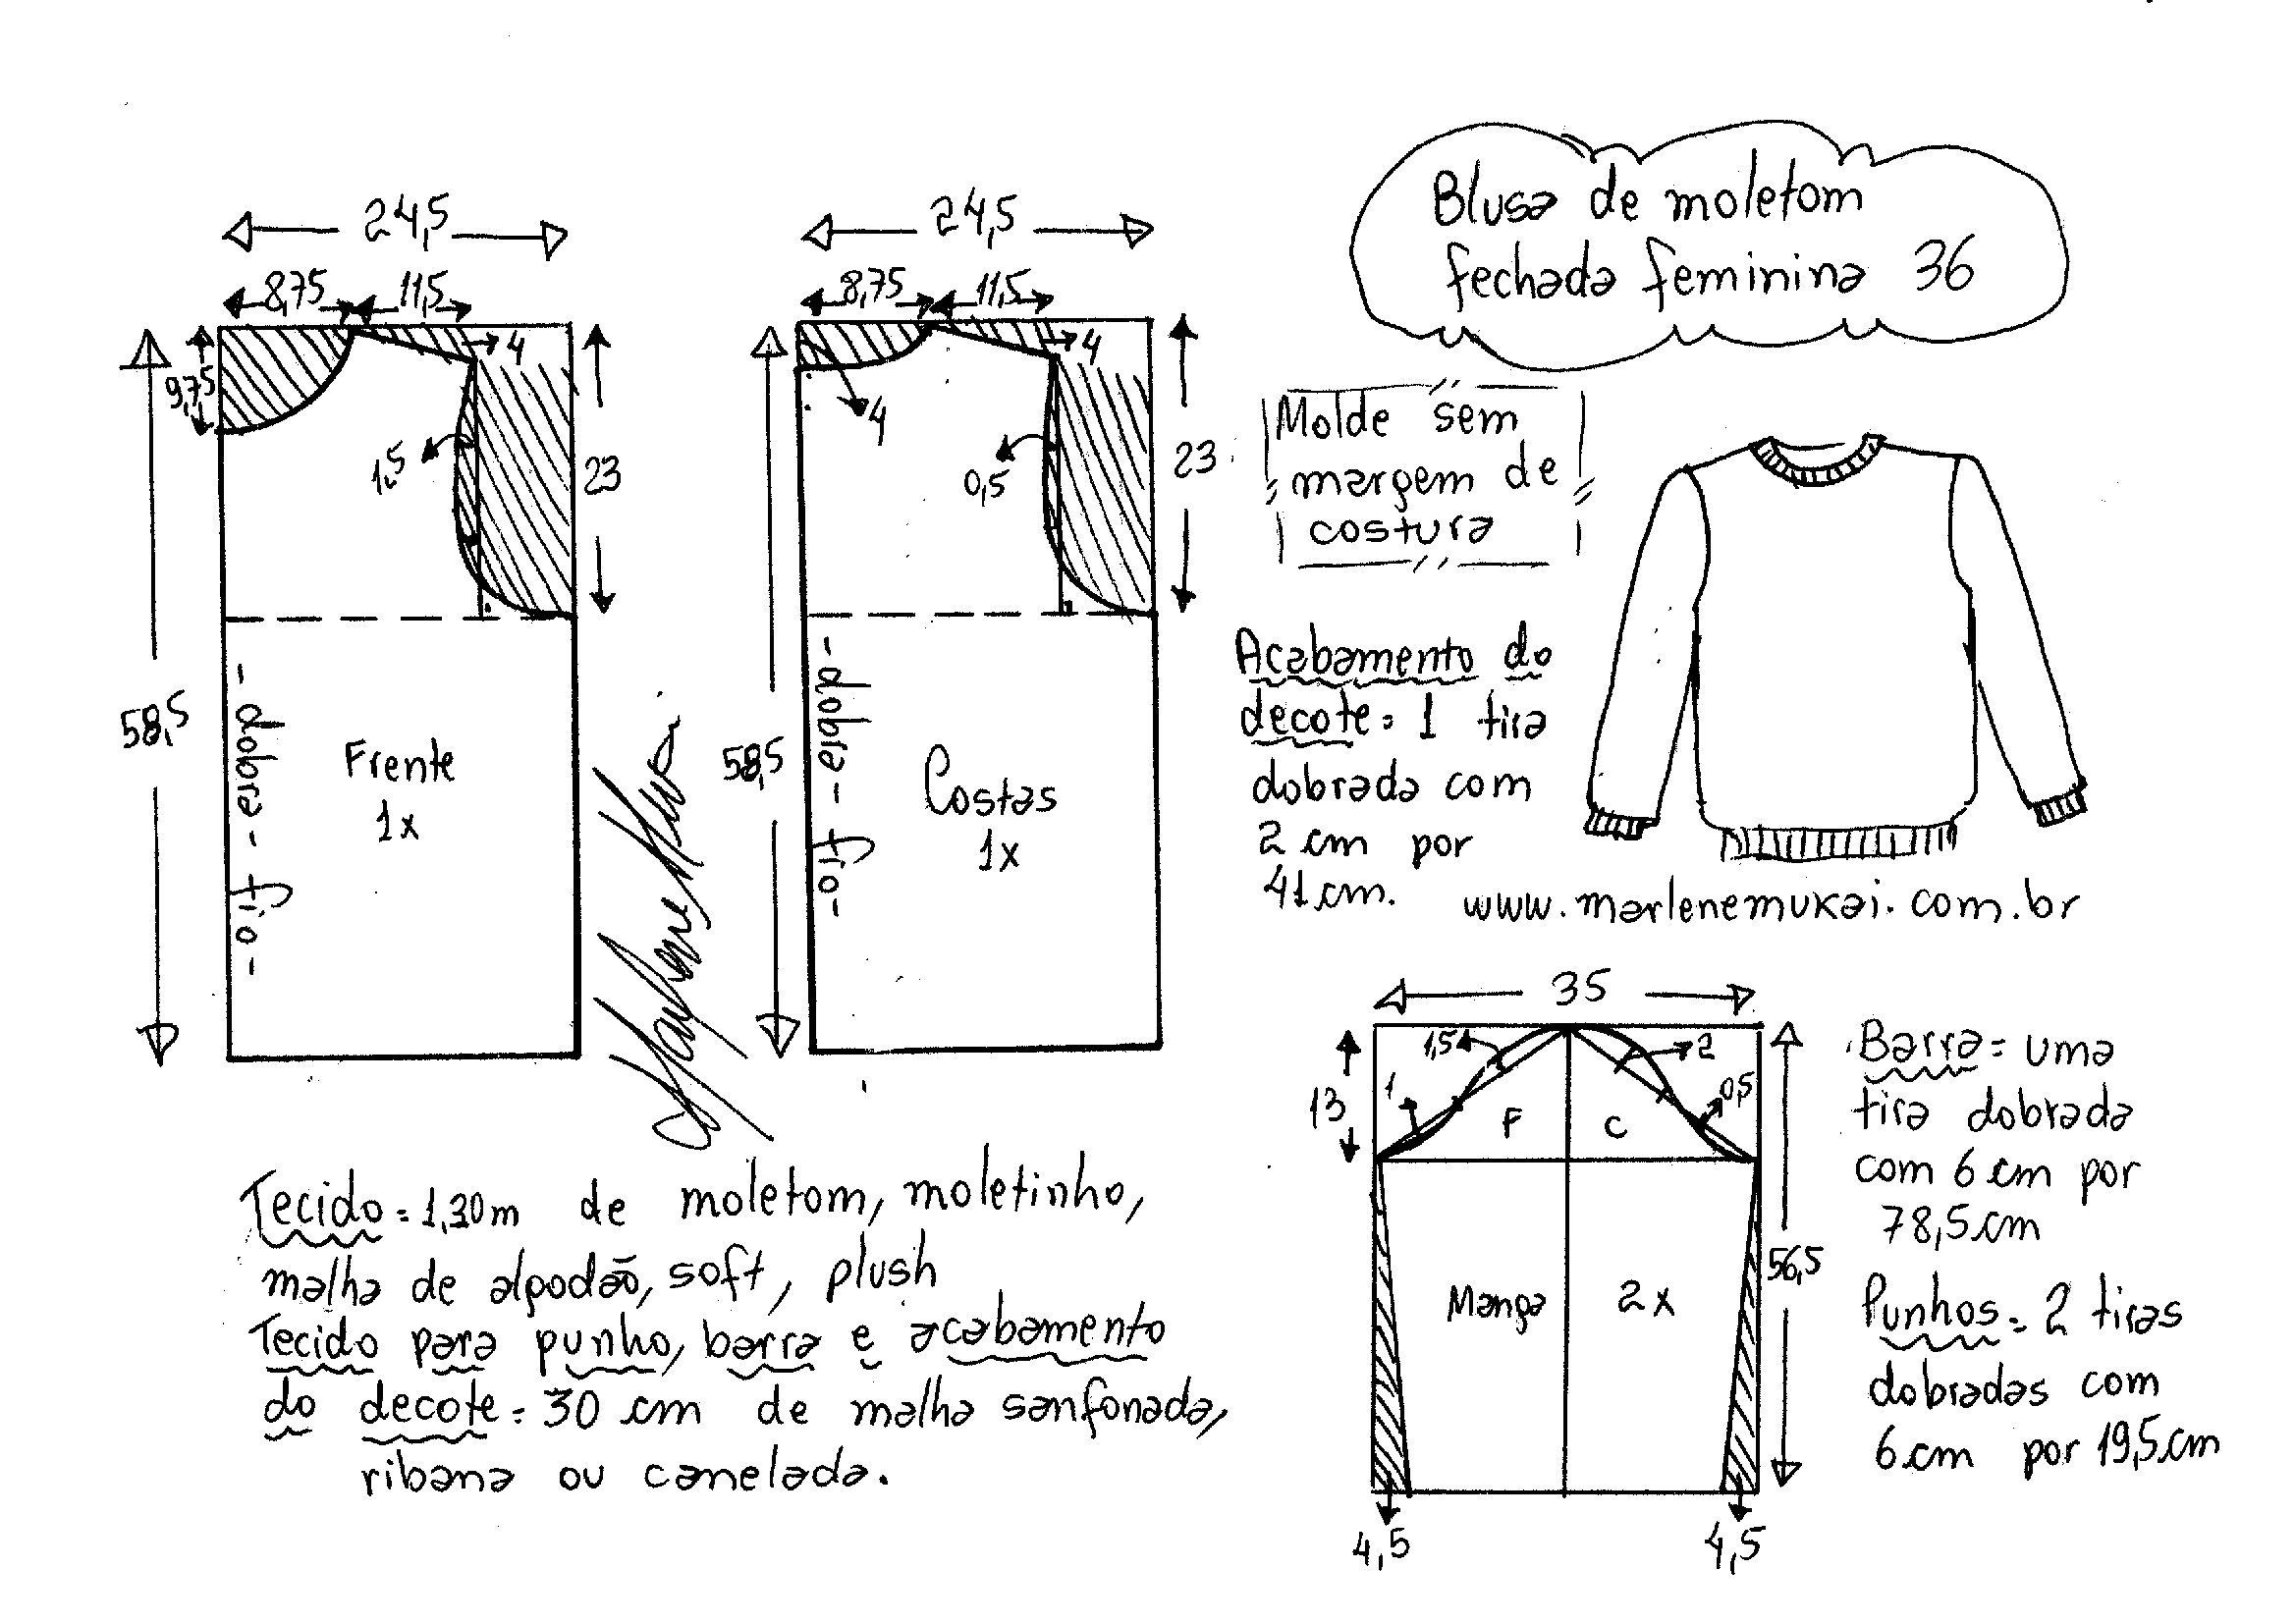 Blusa de moletom
fechada feminina 36
24,5
8,75
11,5
4
9,75
1,5
23
58,5
- dobra - fio -
Frente
1x
24,5
8,75
11,5
4
4
0,5
23
58,5
- dobra - fio -
Costas
1x
Marlene Mukai
Molde sem
margem de
costura
Acabamento do
decote = 1 tira
dobrada com
2 cm por
41 cm.
www.marlenemukai.com.br
35
13
1,5
2
1
0,5
F
C
56,5
Manga
2x
4,5
4,5
Barra = uma
tira dobrada
com 6 cm por
78,5 cm
Punhos = 2 tiras
dobradas com
6 cm por 19,5 cm
Tecido = 1,30m de moletom, moletinho,
malha de algodão, soft, plush
Tecido para punho, barra e acabamento
do decote = 30 cm de malha sanfonada,
ribana ou canelada.